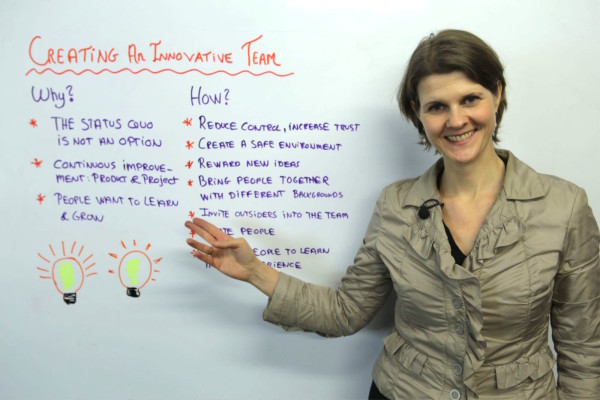 CREATING AN INNOVATIVE TEAM
Why?
* THE STATUS QUO
IS NOT AN OPTION
* CONTINUOUS IMPROVE-
MENT: PRODUCT & PROJECT
* PEOPLE WANT TO LEARN
& GROW
How?
* REDUCE CONTROL, INCREASE TRUST
* CREATE A SAFE ENVIRONMENT
* REWARD NEW IDEAS
* BRING PEOPLE TOGETHER
WITH DIFFERENT BACKGROUNDS
* INVITE OUTSIDERS INTO THE TEAM
* PEOPLE
* TO LEARN